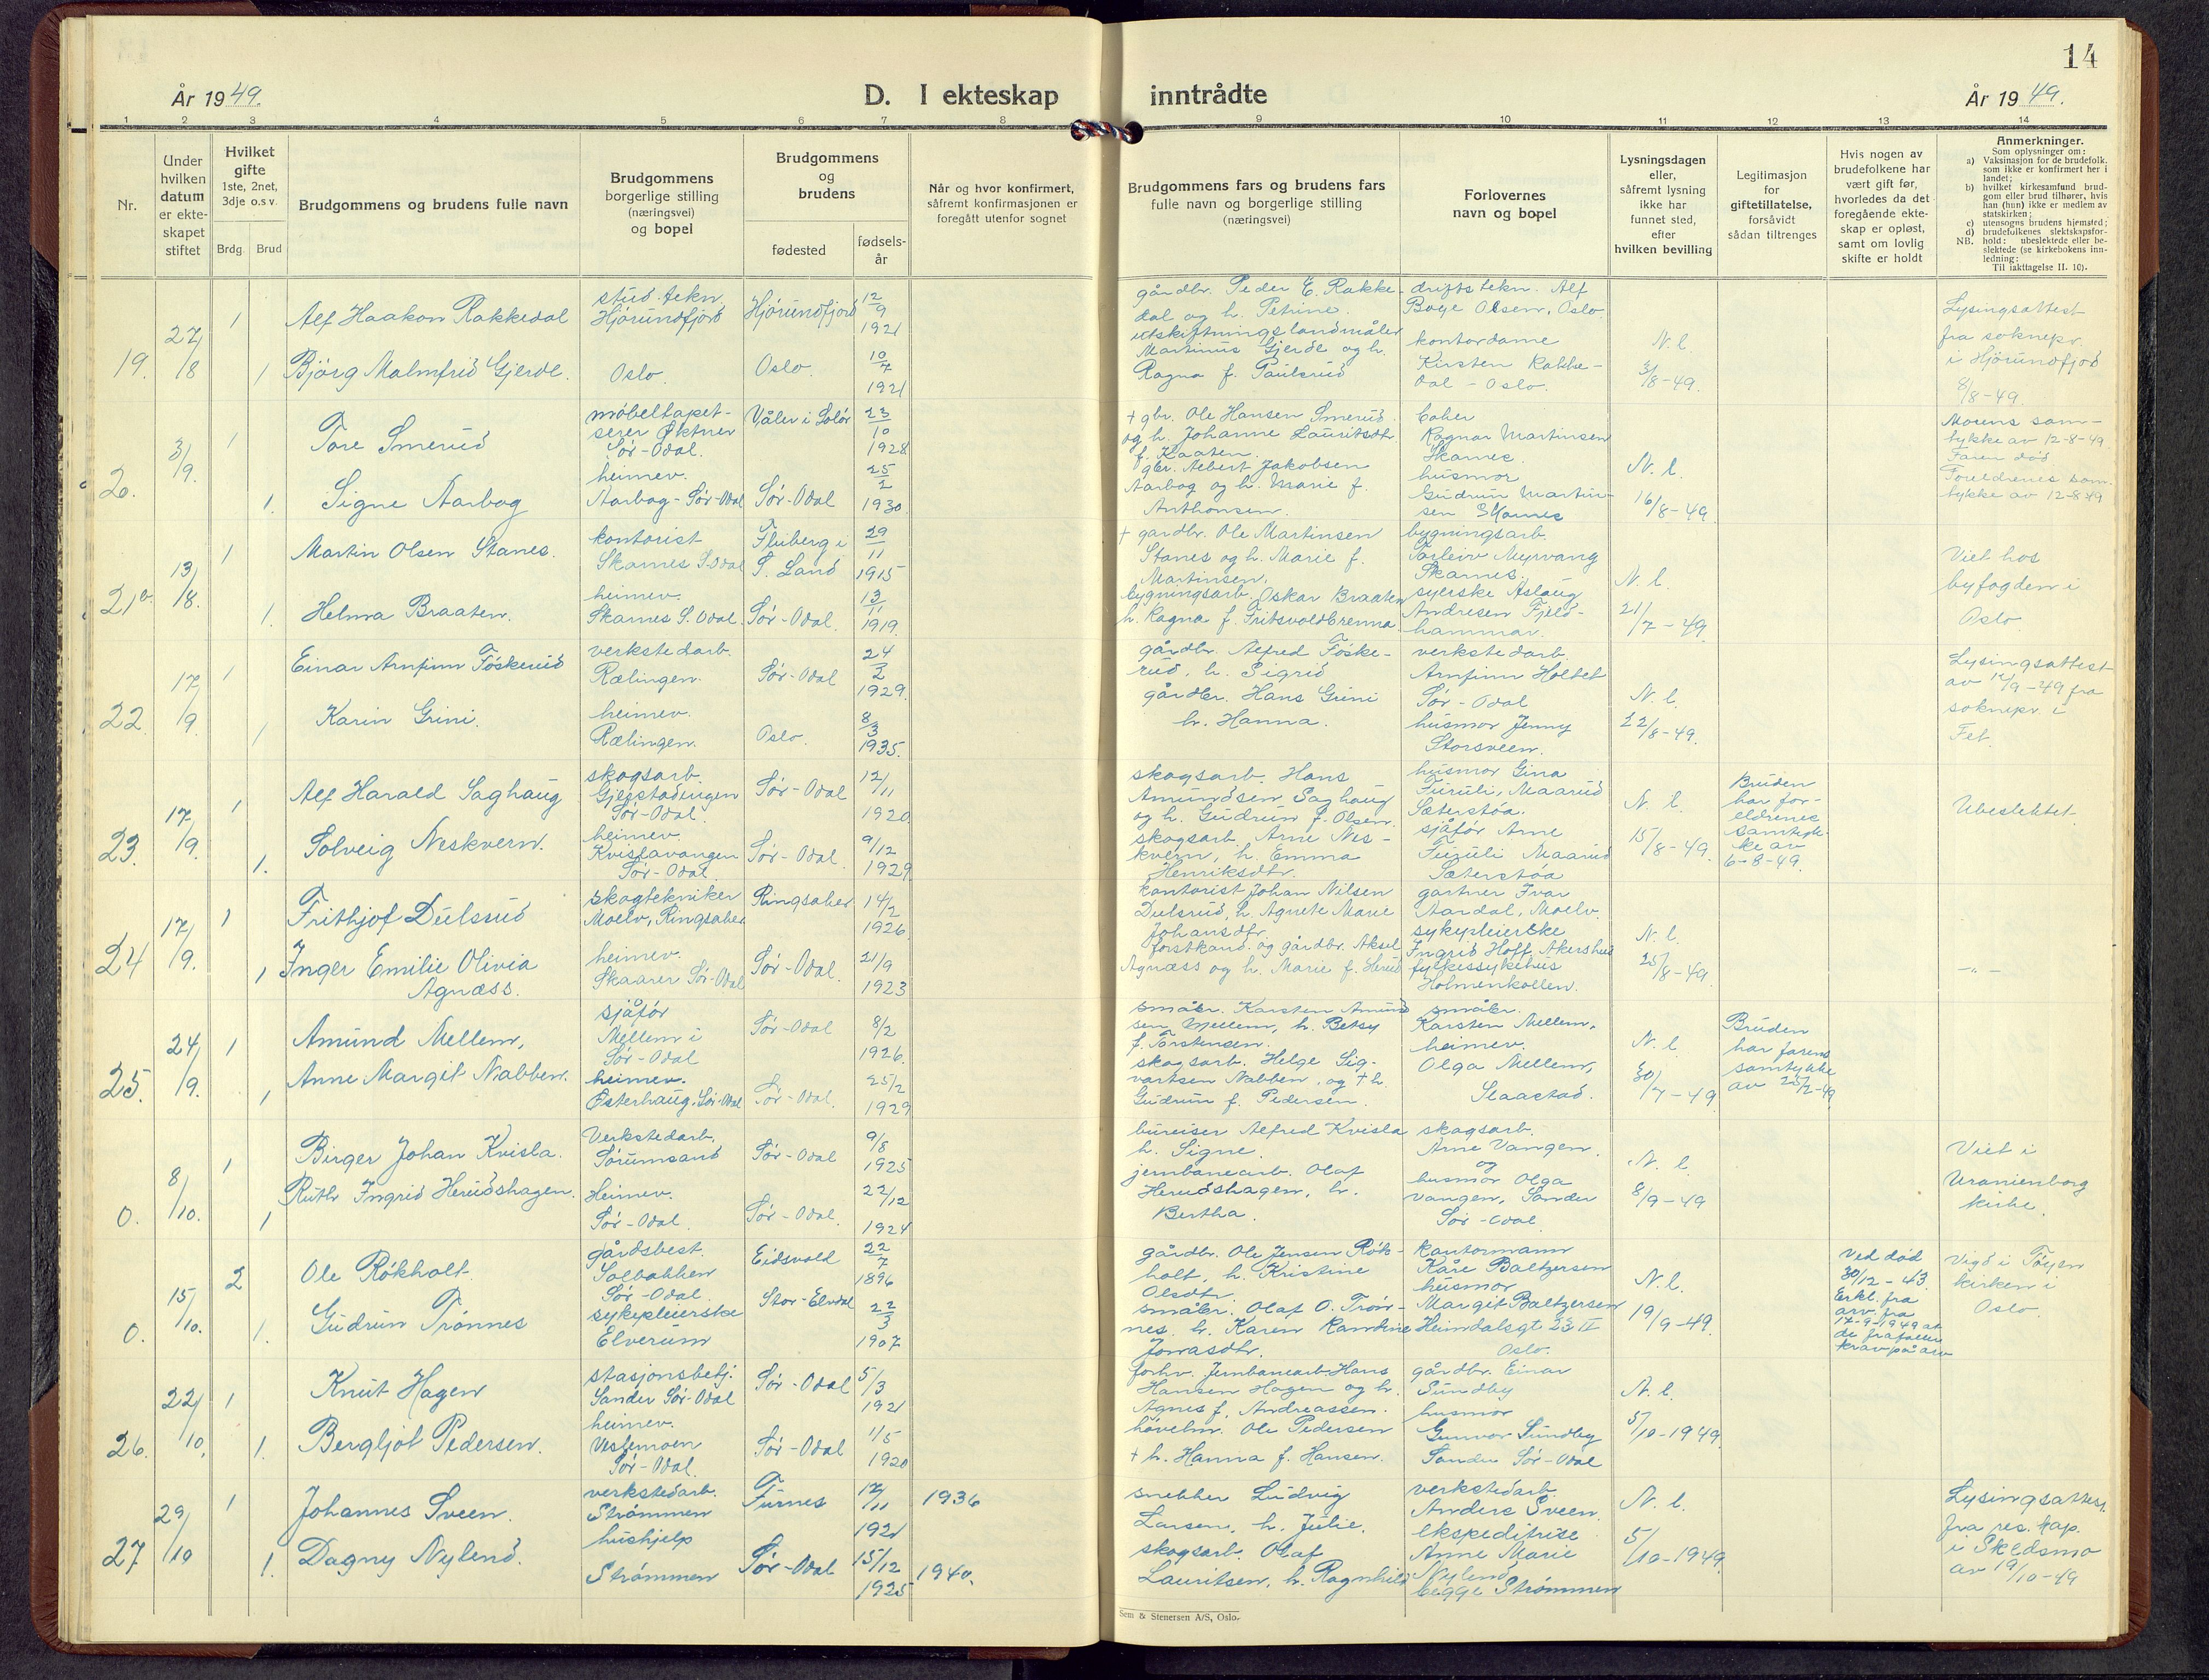 14
År 1949.
D. I ekteskap
inntrådte
År 1949.
1 2 3 4 5 6 7 8 9 10 11 12 13 14
Nr.
Under hvilken datum er ekte-skapet stiftet
Hvilket gifte 1ste, 2net, 3dje o.s v.
Brdg. Brud
Brudgommens og brudens fulle navn
Brudgommens borgerlige stilling (næringsvei) og bopel
Brudgommens og brudens
fødested
fødsels-år
Når og hvor konfirmert, såfremt konfirmasjonen er foregått utenfor sognet
Brudgommens fars og brudens fars fulle navn og borgerlige stilling (næringsvei)
Forlovernes navn og bopel
Lysningsdagen eller, såfremt lysning ikke har funnet sted, efter hvilken bevilling
Legitimasjon for giftetillatelse, forsåvidt sådan tiltrenges
Hvis nogen av brudefolkene har vært gift før, hvorledes da det foregående ekte-skap er opløst, samt om lovlig skifte er holdt
Anmerkninger.
Som oplysninger om:
a) Vaksinasjon for de brudefolk, som ikke er konfirmert her i landet;
b) hvilket kirkesamfund brud-gom eller brud tilhører, hvis han (hun) ikke er medlem av statskirken;
c) utensogns brudens hjemsted;
d) brudefolkenes slektskapsfor-hold: ubeslektede eller be-slektede (se kirkebokens inn-ledning:
NB.
Til iakttagelse II. 10).
19. 27/8 1
Alf Haakon Rakkedal
stud. tekn. Hjørundfjord
Hjørundfjord
12/9 1921
gårdbr. Peder E. Rakkedal og h. Petrine.
driftstekn. Alf Boye Olsen, Oslo.
1 Bjørg Malmfrid Gjerde.
Oslo.
Oslo.
10/7 1921
utskiftningslandmåler Martinus Gjerde og h. Ragna f. Paulsrud
kontordame Kirsten Rakkedal - Oslo.
N. l. 3/8-49.
Lysingsattest fra soknepr. i Hjørundfjord 8/8-49.
20. 3/9. 1
Tore Smerud
møbeltapetserer Øktner Sør-Odal.
Våler i Solør
23/10 1928
+ gbr. Ole Hansen Smerud og h. Johanne Lauritsdtr. f. Kaaten.
Ragnar Martinsen Skarnes.
1. Signe Aarbog
heimev. Aarbog - Sør-Odal
Sør-Odal
25/2 1930.
gbr. Albert Jakobsen Aarbog og h. Marie f. Anthonsen.
husmor Gudrun Martinsen Skarnes
N. l. 16/8-49.
Morens samtykke av 12-8-49
Faren død
Foreldrenes samtykke av 12-8-49
21 13/8. 1
Martin Olsen Stanes.
kontorist Skarnes S. Odal
Fluberg i S. Land
29/11 1915
+ gardbr. Ole Martinsen Stanes og h. Marie f. Martinsen.
bygningsarb. Torleiv Myrvang Skarnes.
1. Helma Braaten.
heimev. Skarnes S. Odal.
Sør-Odal.
13/11 1919.
bygningsarb. Oskar Braaten h. Ragna f. Fritsvoldbrenna.
syerske Aslaug Andresen Fjeldhammar.
N. l. 21/7-49
Viet hos byfogden i Oslo.
22 17/9. 1
Einar Arnfinn Føskerud
verkstedarb. Rælingen.
Sør-Odal
24/2 1929.
gårdbr. Alfred Føskerud, h. Sigrid
verkstedarb Arnfinn Holtet Sør-Odal
1 Karin Grini.
heimev. Rælingen.
Oslo.
8/3 1935.
gårdbr. Hans Grini h. Hanna.
husmor Jenny Storsveen.
N. l. 22/8-49.
Lysingsattest av 12/9-49 fra soknepr. i Fet.
23. 17/9. 1
Alf Harald Saghaug
skogsarb. Gjerstadengen Sør-Odal.
Sør-Odal
12/11 1920
skogsarb. Hans Amundsen Saghaug og h. Gudrun f. Olsen.
husmor Gina Furuli, Maarud Sæterstøa.
1. Solveig Neskvern.
heimev. Kvislavangen Sør-Odal.
Sør-Odal.
9/12 1929
skogsarb. Arne Neskvern, h. Emma Henriksdtr.
sjåfør Arne Furuli Maarud Sæterstøa
N. l. 15/8-49.
Bruden har foreldrenes samtykke av 6-8-49.
Ubeslektet.
24 17/9. 1
Frithjof Dulsrud
skogtekniker Moelv, Ringsaker
Ringsaker
14/2 1926.
kontorist Johan Nilsen Dulsrud, h. Agnete Marie Johansdtr.
gartner Ivar Aardal, Moelv.
1 Inger Emilie Olivia Agnæss.
heimev. Skaarer Sør-Odal
Sør-Odal.
21/9 1923
forstkand. og gårdbr. Aksel Agnæss og h. Marie f. Herud
sykepleierske Ingrid Hoff, Akershus fylkessykehus Holmenkollen.
N. l. 25/8-49.
-"-
25. 24/9. 1
Amund Mellem,
sjåfør Mellem i Sør-Odal
Sør-Odal
8/2 1926.
småbr. Karsten Amundsen Mellem, h. Betsy f. Torstensen.
småbr. Karsten Mellem,
1 Anne Margit Nabben.
heimev. Østerhaug. Sør-Odal
Sør-Odal.
25/2 1929
skogsarb. Helge Sigvartsen Nabben, og + h. Gudrun f. Pedersen.
heimev. Olga Mellem, Slaastad.
N. l. 30/7-49
Bruden har farens samtykke av 25/7-49
0. 8/10. 1
Birger Johan Kvisla.
Verkstedarb. Sørumsand
Sør-Odal
9/8 1925
bureiser Alfred Kvisla h. Signe.
skogsarb. Arne Vangen. og
1 Ruth Ingrid Herudshagen.
Heimev. Sør-Odal.
Sør-Odal.
22/12 1924
jernbanearb. Olaf Herudshagen, h. Bertha.
husmor Olga Vangen, Sander Sør-Odal
N. l. 8/9-49
Viet i Uranienborg kirke.
0. 15/10. 2
Ole Røkholt.
gårdsbest. Solbakken Sør-Odal.
Eidsvold
22/7 1896
gårdbr. Ole Jensen Røkholt, h. Kristine Olsdtr.
kontormann Kåre Baltzersen
1. Gudrun Trønnes
sykepleierske Elverum
Stor-Elvdal
22/3 1907
småbr. Olaf O. Trønnes. h. Karen Randine Jonasdtr.
husmor Margit Baltzersen Heimdalsgt 23 II Oslo.
N. l. 19/9-49.
Ved død 30/12-43. Erkl. fra arv. fra 17-9-1949 at de frafaller krav på arv
Vigd i Tøyen kirken i Oslo.
26. 22/10. 1
Knut Hagen
stasjonsbetj. Sander Sør-Odal
Sør-Odal
5/3 1921
forhv. Jernbanearb. Hans Hansen Hagen og h. Agnes f. Andreassen.
gårdbr. Einar Sundby
1. Bergljot Pedersen.
heimev. Vestmoen Sør-Odal.
Sør-Odal
1/5 1920
høvelm. Ole Pedersen + h. Hanna f. Hansen.
husmor Gunvor Sundby Sander Sør-Odal
N. l. 5/10-1949.
27 29/10 1
Johannes Sveen.
verkstedarb. Strømmen
Furnes
1921
1936
snekker Ludvig Larsen, h. Julie.
verkstedarb. Anders Sveen.
1. Dagny Nylend.
hushjelp Strømmen
Sør-Odal
15/12 1925
1940.
skogsarb. Olaf Lauritsen, h. Ragnhild
ekspeditrise Anne Marie Nylend begge Strømmen
N. l. 5/10-1949.
Lysingsattest. fra res. kap. i Skedsmo av 19/10-49
Sem & Stenersen A/S, Oslo.